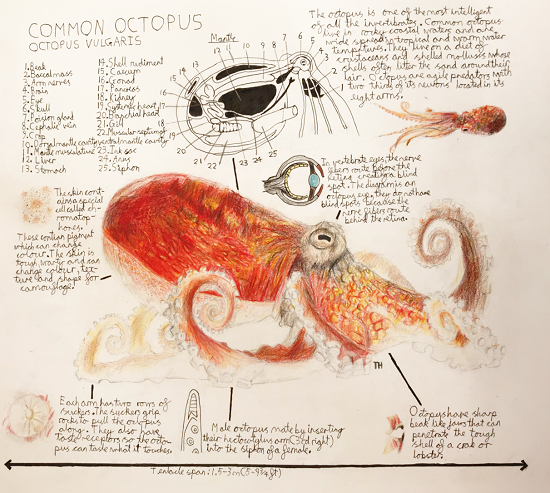 COMMON OCTOPUS
OCTOPUS VULGARIS
1. Beak
2. Buccal mass
3. Arm nerves
4. Brain
5. Eye
6. Skull
7. Poison gland
8. Cephalic vein
9. Crop
10. Dorsal mantle cavity
11. Mantle musculature
12. Liver
13. Stomach
14. Shell rudiment
15. Caecum
16. Gonad
17. Pancreas
18. Kidney
19. Systemic heart
20. Branchial heart
21. Gill
22. Muscular septum of
ventral mantle cavity
23. Ink sac
24. Anus
25. Siphon
Mantle
1
2
3
4
5
6
7
8
9
10
11
12
13
14
15
16
17
18
19
20
21
22
23
24
25
The octopus is one of the most intelligent
of all the invertebrates. Common octopus
live in rocky coastal waters and are
wide spread in tropical and warm water
tempertures. They line on a diet of
crustaceans and shelled molluscs whose
shells often litter the sand around their
lair. Octopus are agile predators with
two thirds of its neurons located in its
eight arms.
In vertebrate eyes, the nerve
fibers route before the
retina, creating a blind
spot. The diagram is an
octopus eye, they do not have
blind spots because the
nerve fibers route
behind the retina.
The skin cont-
ains a special
cell called ch-
romatop-
hores.
These contian pigment
which can change
colour. The skin is
tough, warty and can
change colour, tex-
ture and shape for
camouflage.
TH
Each arm has two rows of
suckers. The suckers grip
rocks to pull the octopus
along. They also have
taste receptors so the octo-
pus can taste what it touches.
Male octopus mate by inserting
their hectocotylus arm (3rd right)
into the siphon of a female.
Octopus have sharp
beak like jaws that can
penetrate the tough
shell of a crab or
lobster.
Tentacle span: 1.5-3m (5-9¾ft)